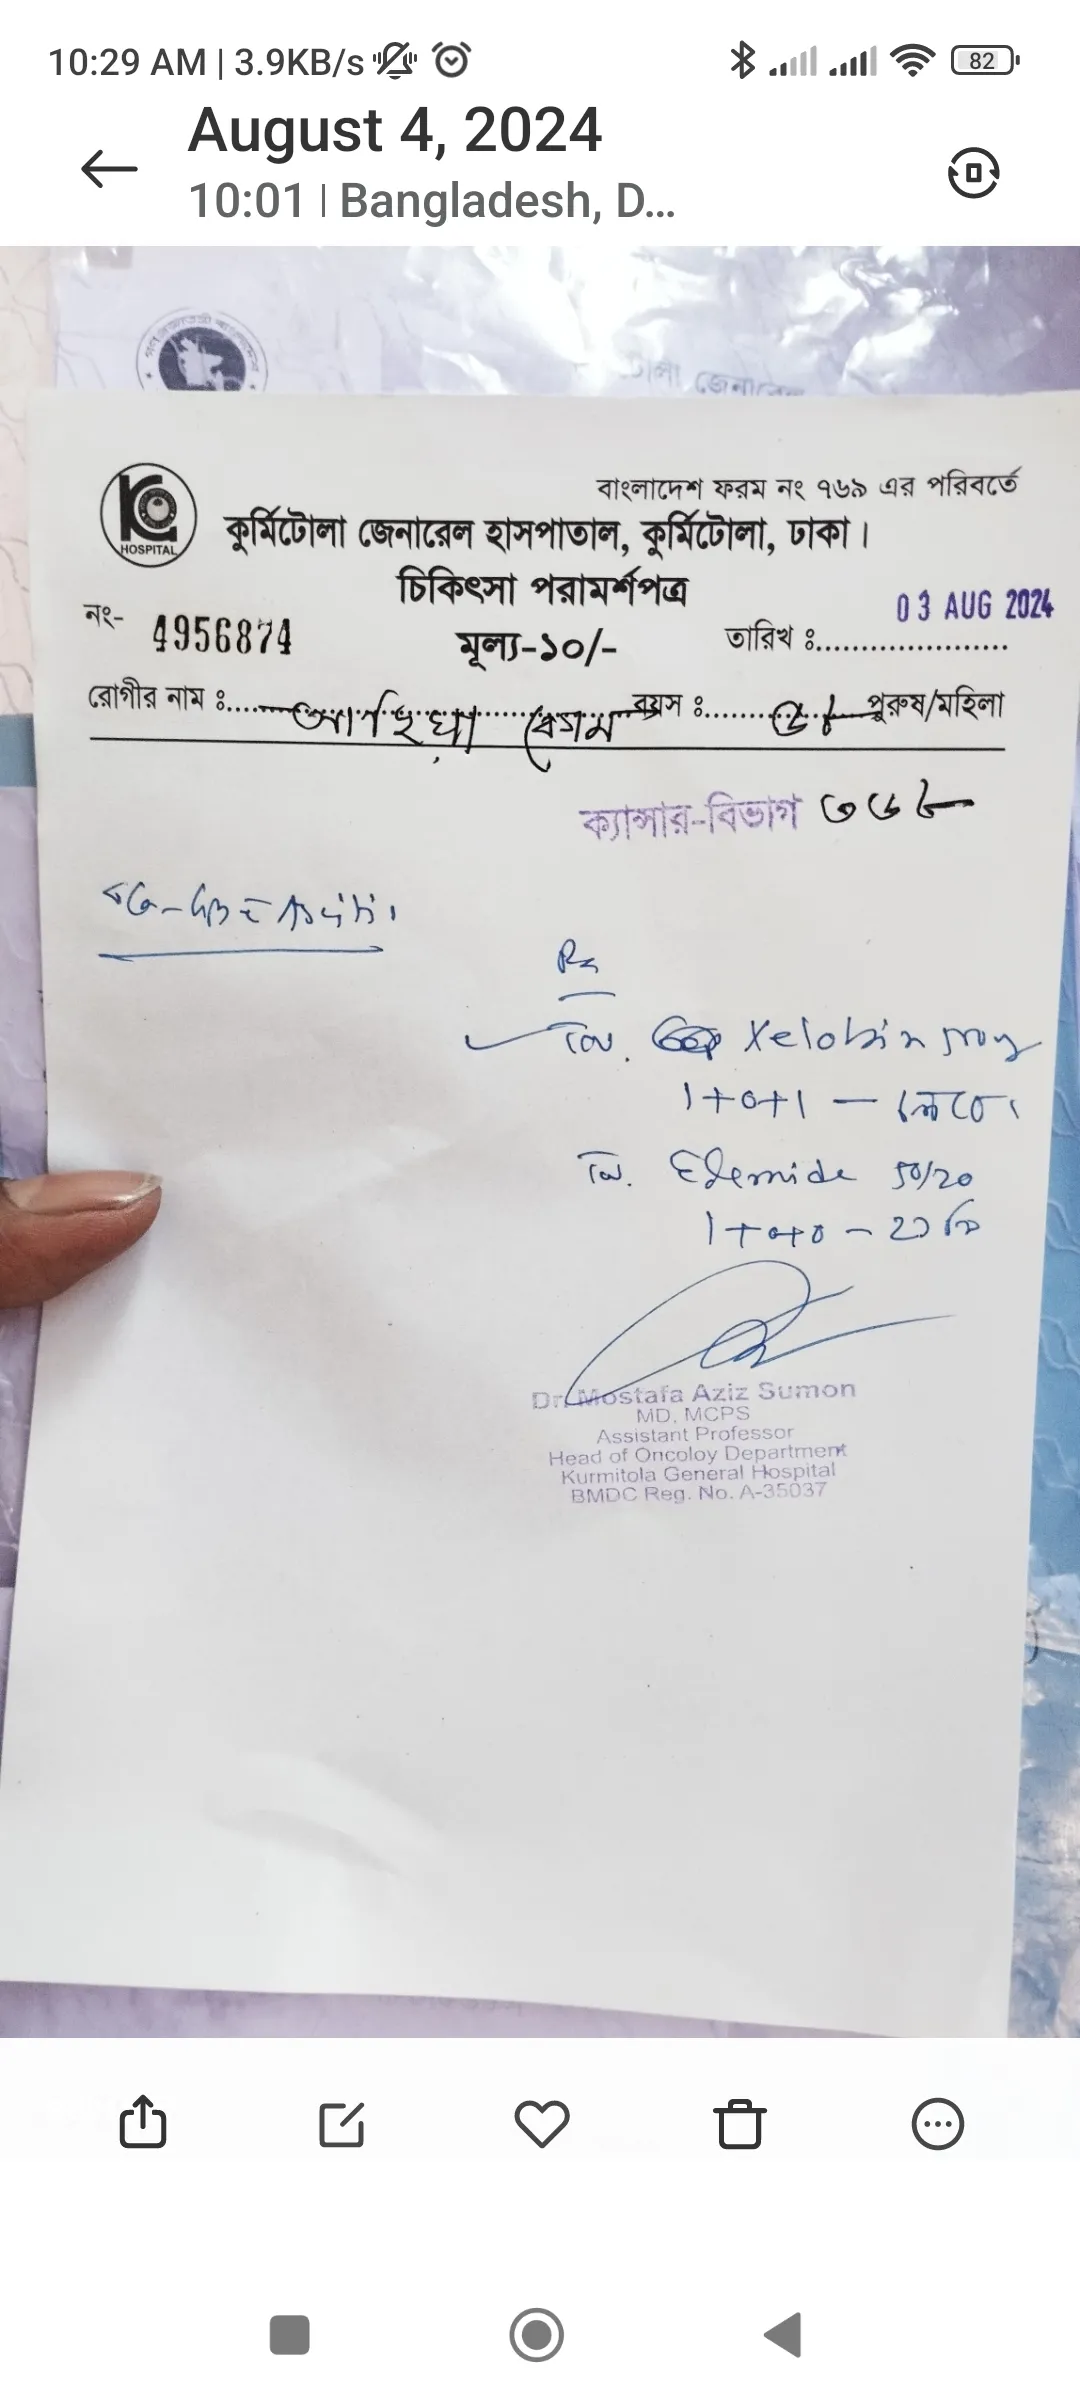 10:29 AM | 3.9KB/s
82
August 4, 2024
10:01 | Bangladesh, D...
জেনারেল
বাংলাদেশ ফরম নং ৭৬৯ এর পরিবর্তে
HOSPITAL
কুর্মিটোলা জেনারেল হাসপাতাল, কুর্মিটোলা, ঢাকা।
চিকিৎসা পরামর্শপত্র
নং- 4956874
মূল্য-১০/-
তারিখ ঃ..................... 03 AUG 2024
রোগীর নাম ঃ.... বেগম বয়স ঃ........ পুরুষ/মহিলা
ক্যান্সার-বিভাগ
Rx
Tab. Xelobin 500mg
1+0+1
Tab. Edemide 50/20
1+0+0 -
Dr. Mostafa Aziz Sumon
MD, MCPS
Assistant Professor
Head of Oncoloy Department
Kurmitola General Hospital
BMDC Reg. No. A-35037